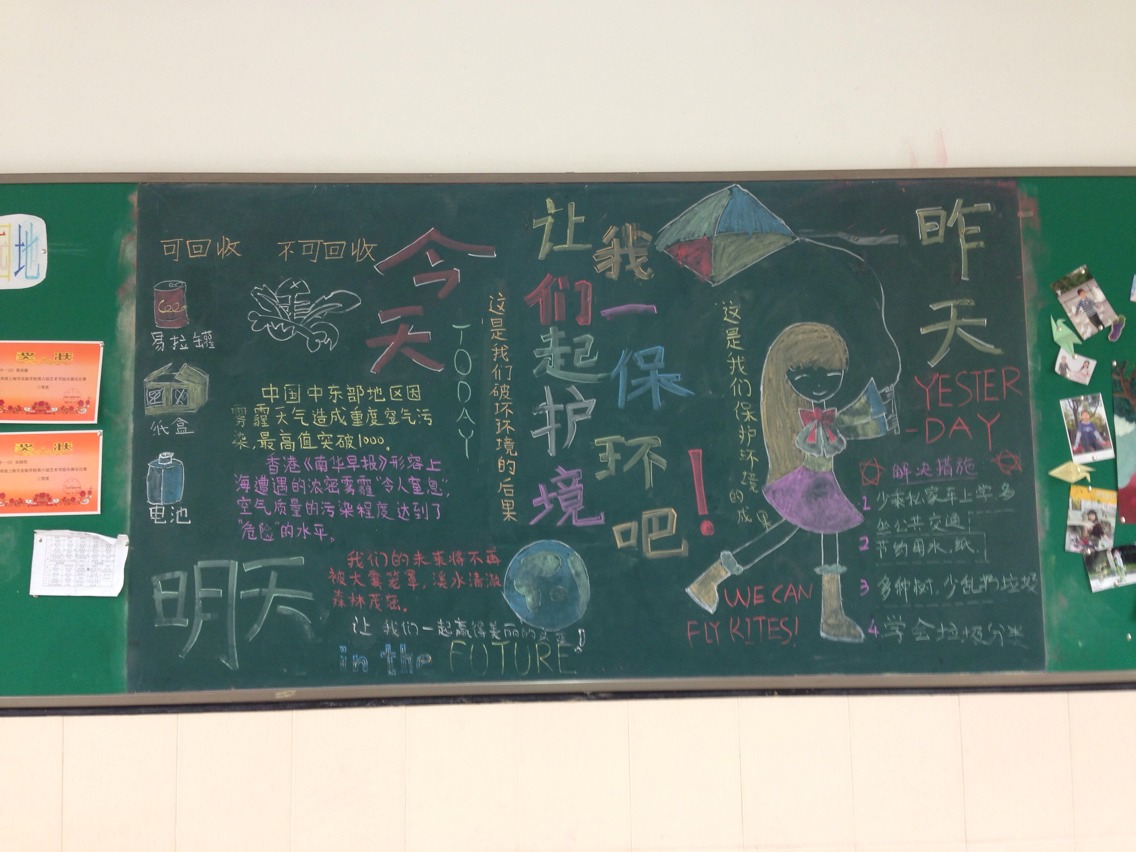 可回收
不可回收
易拉罐
纸盒
电池
今天
TODAY
这是我们破坏环境的后果
中国中东部地区因
雾霾天气造成重度空气污
染,最高值突破1000。
香港《南华早报》形容上
海遭遇的浓密雾霾“令人窒息”,
空气质量的污染程度达到了
“危险”的水平。
明天
我们的未来将不再
被大雾笼罩,溪水清澈
森林茂密。
让我们一起赢得美丽的
in the FUTURE
让我们一起保护环境吧!
这是我们保护环境的成果
WE CAN
FLY KITES!
昨天
YESTER
-DAY
解决措施
1 少乘私家车上学多
坐公共交通
2 节约用水、纸.
3 多种树,少乱扔垃圾
4.学会垃圾分类
奖状
奖状
地